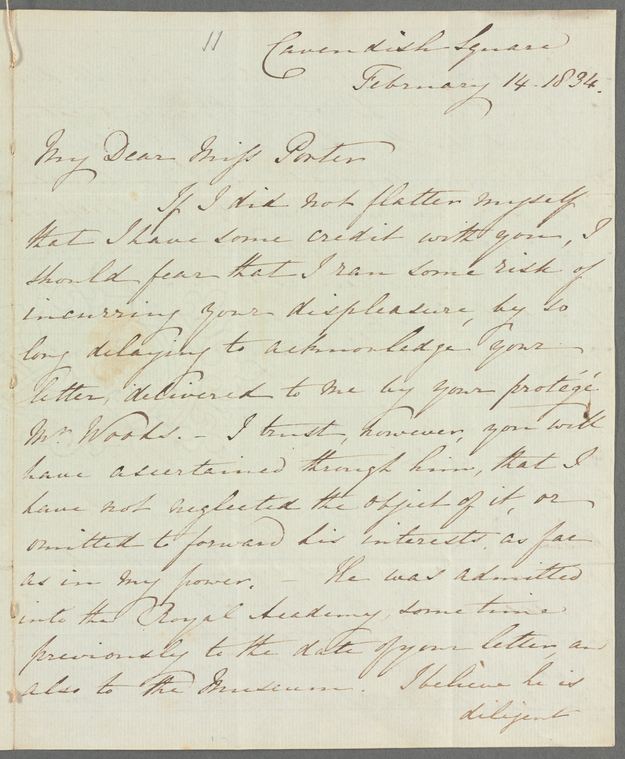 11
Cavendish Square
February 14. 1834.
My Dear Miss Porter
If I did not flatter myself
that I have some credit with you, I
should fear that I ran some risk of
incurring your displeasure, by so
long delaying to acknowledge your
letter, delivered to me by your protégé
Mr. Woods. - I trust, however, you will
have ascertained through him, that I
have not neglected the object of it, or
omitted to forward his interests, as far
as in my power. He was admitted
into the Royal Academy, some time
previously to the date of your letter, an
also to the Museum. I believe he is
diligent